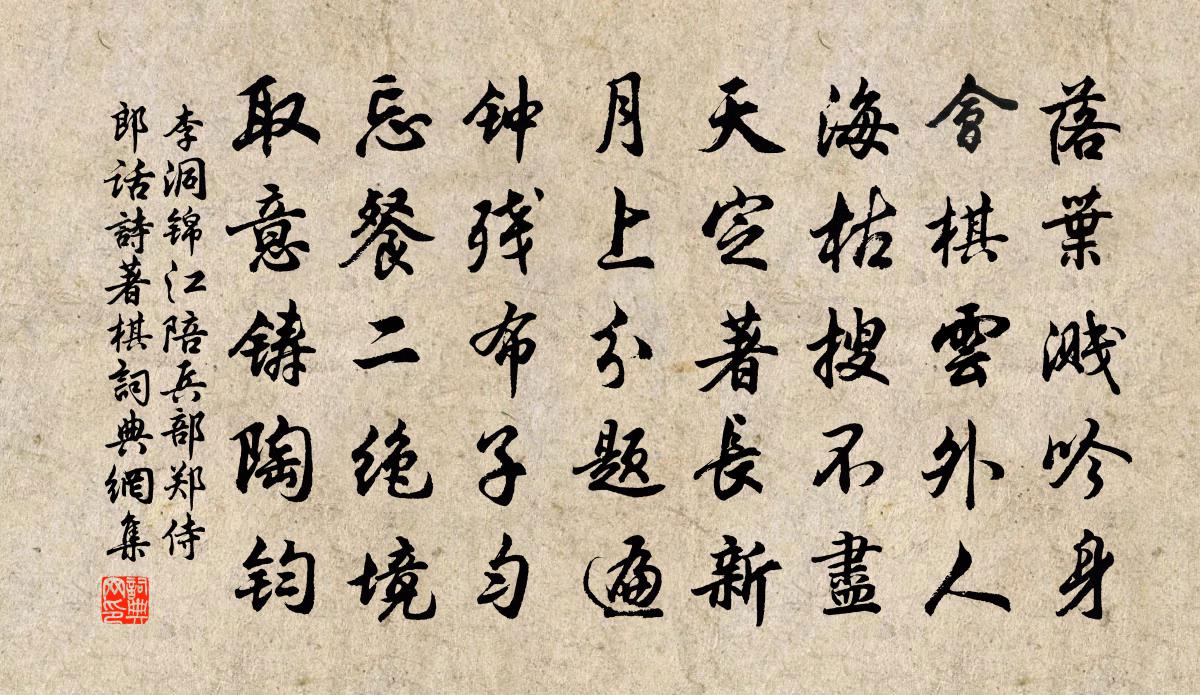 落葉溅吟身
會棋雲外人
海枯搜不盡
天定著長新
月上分题遍
钟残布子匀
忘餐二绝境
取意铸陶钧
李洞锦江陪兵部郑侍
郎话詩著棋詞典網集
詞典